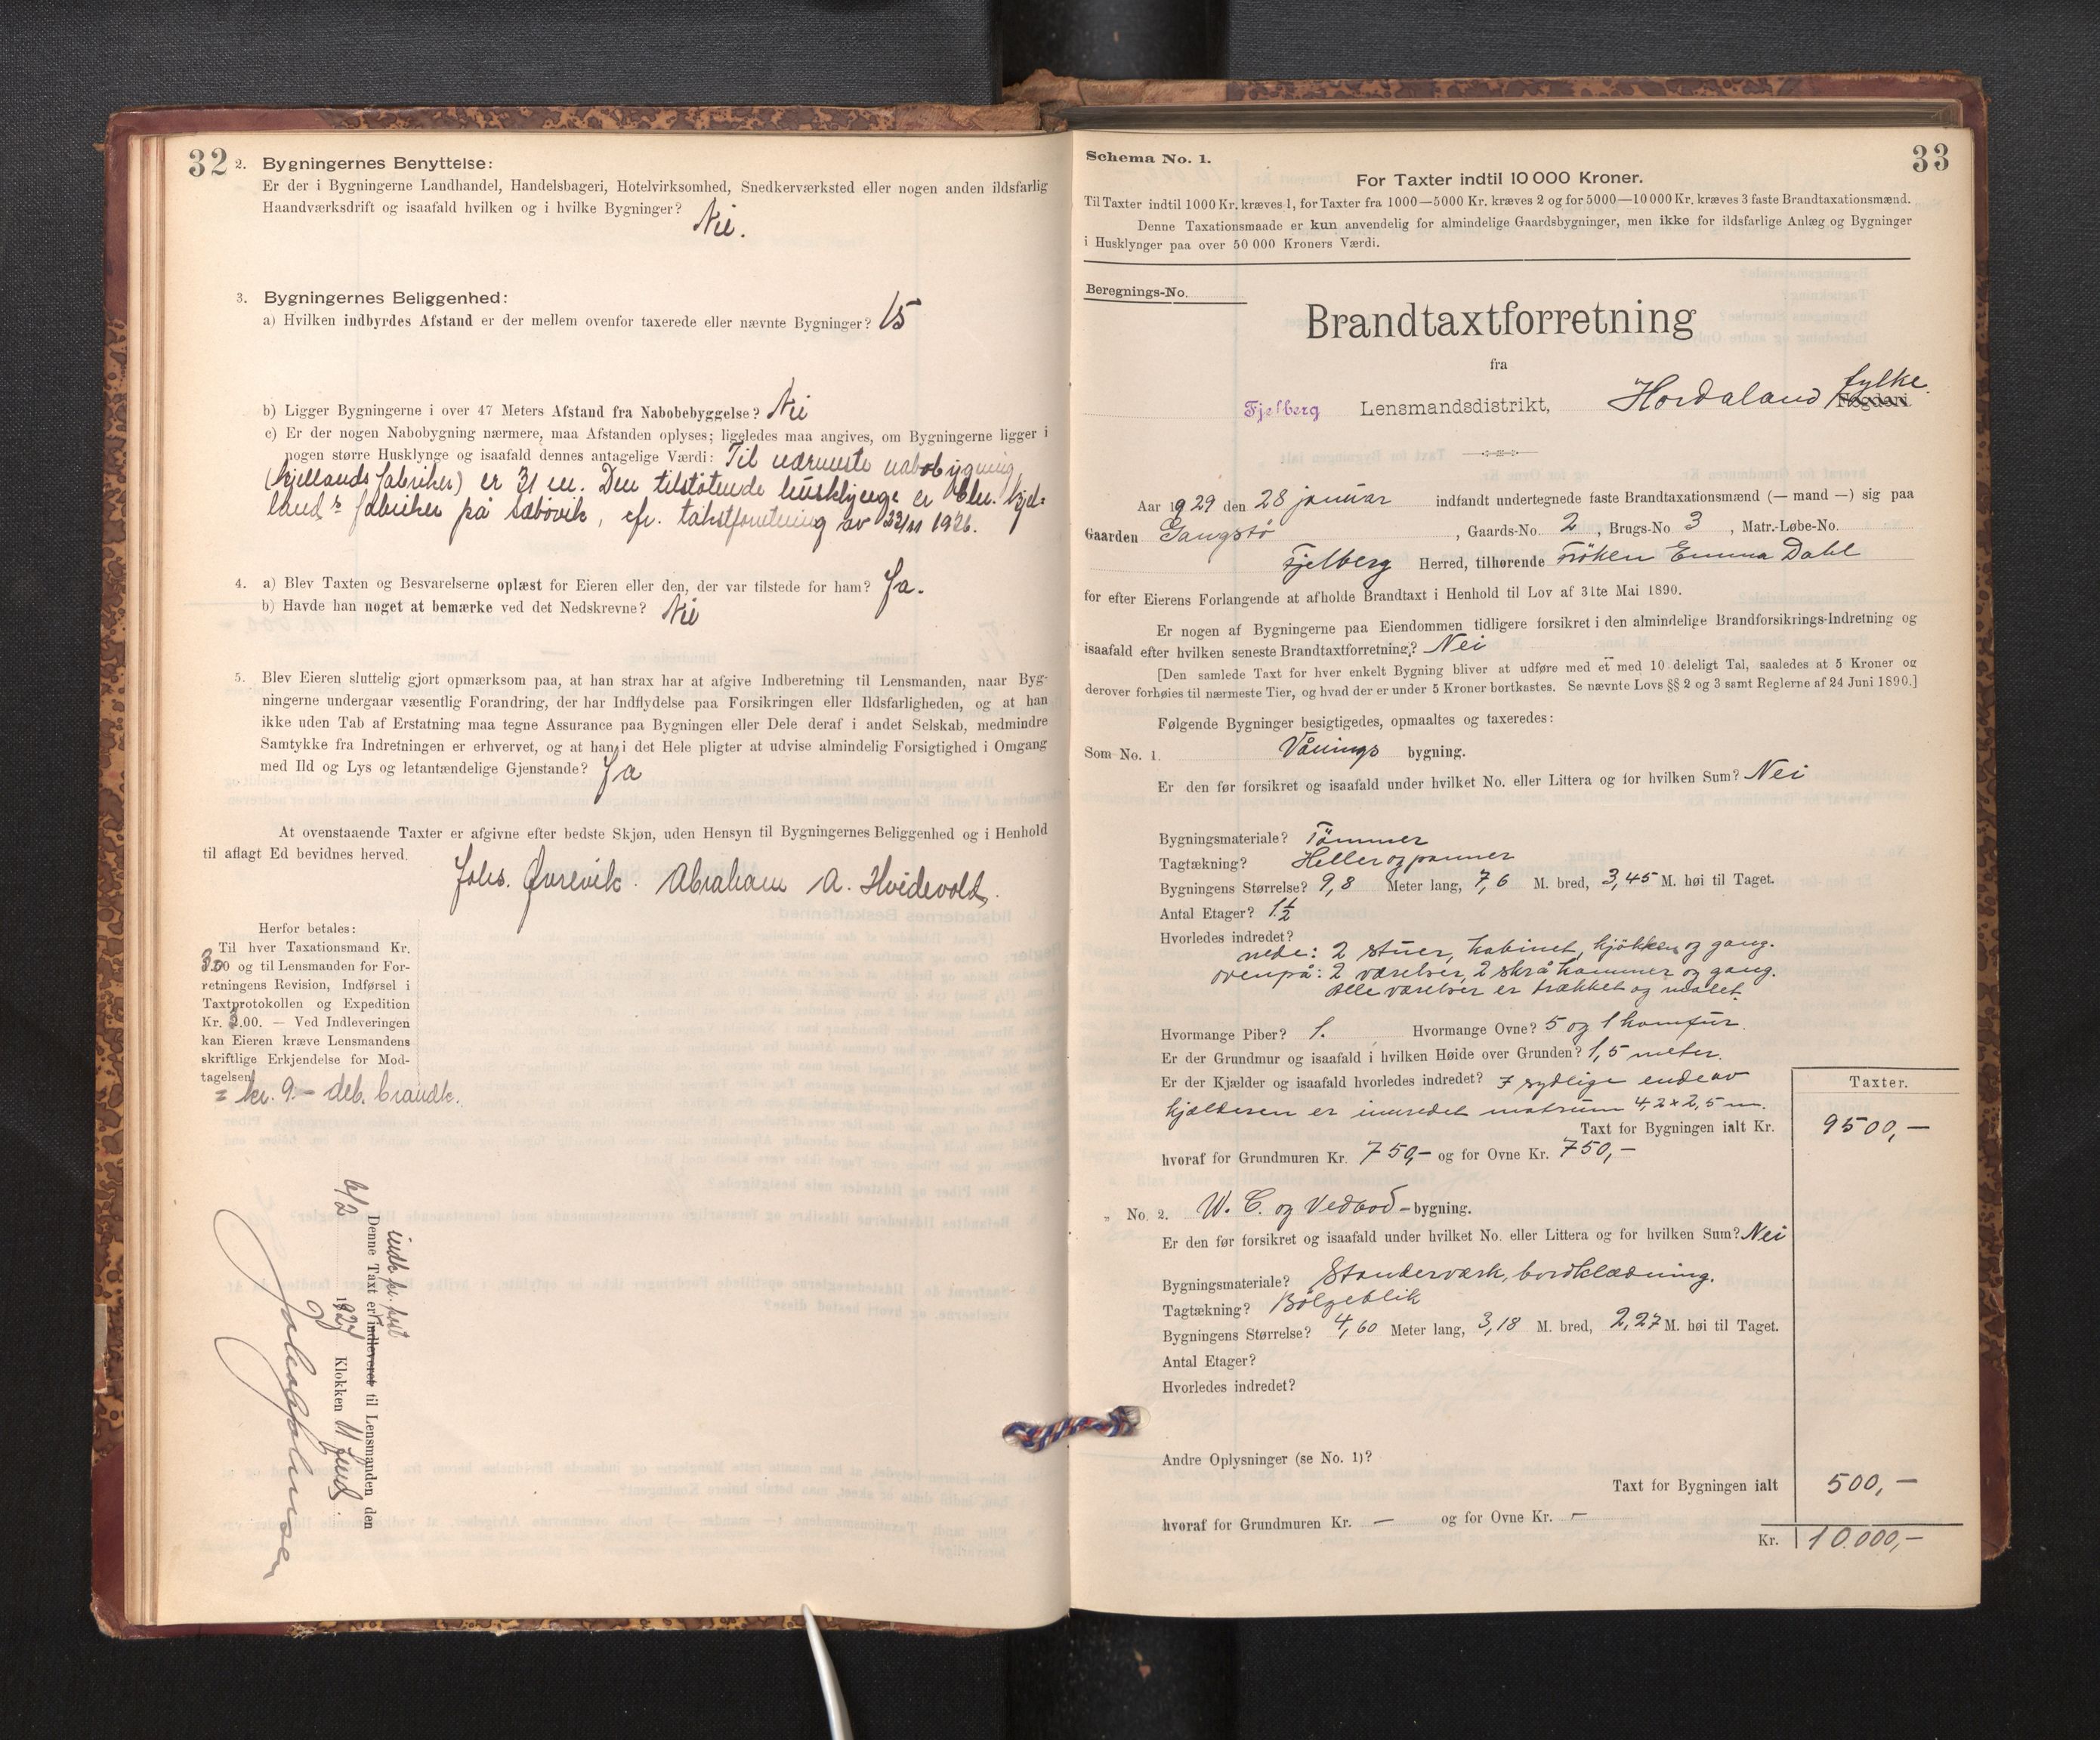 32
2. Bygningernes Benyttelse:
Er der i Bygningerne Landhandel, Handelsbageri, Hotelvirksomhed, Snedkerværksted eller nogen anden ildsfarlig
Haandværksdrift og isaafald hvilken og i hvilke Bygninger?
Nei.
3. Bygningernes Beliggenhed:
a) Hvilken indbyrdes Afstand er der mellem ovenfor taxerede eller nævnte Bygninger? 15
b) Ligger Bygningerne i over 47 Meters Afstand fra Nabobebyggelse? Nei
c) Er der nogen Nabobygning nærmere, maa Afstanden oplyses; ligeledes maa angives, om Bygningerne ligger i
nogen større Husklynge og isaafald dennes antagelige Værdi: Til nærmeste nabobygning
(Kjellands fabriker) er 31 m. Den tilstøtende husklynge er Chr. Kjel-
lands fabriker på Sæbøvik, cfr. takstforretning av 22/11 1926.
4. a) Blev Taxten og Besvarelserne oplæst for Eieren eller den, der var tilstede for ham? Ja.
b) Havde han noget at bemærke ved det Nedskrevne? Nei
5. Blev Eieren sluttelig gjort opmærksom paa, at han strax har at afgive Indberetning til Lensmanden, naar Byg-
ningerne undergaar væsentlig Forandring, der har Indflydelse paa Forsikringen eller Ildsfarligheden, og at han
ikke uden Tab af Erstatning maa tegne Assurance paa Bygningen eller Dele deraf i andet Selskab, medmindre
Samtykke fra Indretningen er erhvervet, og at han i det Hele pligter at udvise almindelig Forsigtighed i Omgang
med Ild og Lys og letantændelige Gjenstande? Ja
At ovenstaaende Taxter er afgivne efter bedste Skjøn, uden Hensyn til Bygningernes Beliggenhed og i Henhold
til aflagt Ed bevidnes herved.
Johs. Øvrevik. Abraham A. Hvidevold.
Herfor betales:
Til hver Taxationsmand Kr.
3.00 og til Lensmanden for For-
retningens Revision, Indførsel i
Taxtprotokollen og Expedition
Kr. 3.00. — Ved Indleveringen
kan Eieren kræve Lensmandens
skriftlige Erkjendelse for Mod-
tagelsen.
= kr. 9.- deb. brandk.
indk pr. post
Denne Taxt er indleveret til Lensmanden den
6/2 1927 Klokken 11 form.
33
Schema No. 1.
For Taxter indtil 10 000 Kroner.
Til Taxter indtil 1000 Kr. kræves 1, for Taxter fra 1000—5000 Kr. kræves 2 og for 5000—10 000 Kr. kræves 3 faste Brandtaxationsmænd.
Denne Taxationsmaade er kun anvendelig for almindelige Gaardsbygninger, men ikke for ildsfarlige Anlæg og Bygninger
i Husklynger paa over 50 000 Kroners Værdi.
Beregnings-No.
Brandtaxtforretning
fra
Fjelberg Lensmandsdistrikt, Hordaland fylke Fogderi.
Aar 1929 den 28 januar indfandt undertegnede faste Brandtaxationsmænd (— mand —) sig paa
Gaarden Gangstø , Gaards-No. 2 , Brugs-No 3 , Matr.-Løbe-No.
Fjelberg Herred, tilhørende Frøken Emma Dahl
for efter Eierens Forlangende at afholde Brandtaxt i Henhold til Lov af 31te Mai 1890.
Er nogen af Bygningerne paa Eiendommen tidligere forsikret i den almindelige Brandforsikrings-Indretning og
isaafald efter hvilken seneste Brandtaxtforretning? Nei
[Den samlede Taxt for hver enkelt Bygning bliver at udføre med et med 10 deleligt Tal, saaledes at 5 Kroner og
derover forhøies til nærmeste Tier, og hvad der er under 5 Kroner bortkastes. Se nævnte Lovs §§ 2 og 3 samt Reglerne af 24 Juni 1890.]
Følgende Bygninger besigtigedes, opmaaltes og taxeredes:
Som No. 1. Vånings bygning.
Er den før forsikret og isaafald under hvilket No. eller Littera og for hvilken Sum? Nei
Bygningsmateriale? Tømmer
Tagtækning? Heller og panner
Bygningens Størrelse? 9,8 Meter lang, 7,6 M. bred, 3,45 M. høi til Taget.
Antal Etager? 1 1/2
Hvorledes indredet?
nede: 2 stuer, kabinet, kjøkken og gang.
ovenpå: 2 værelser, 2 skråkammer og gang.
Alle værelser er trækket og malet.
Hvormange Piber? 1. Hvormange Ovne? 5 og 1 komfur.
Er der Grundmur og isaafald i hvilken Høide over Grunden? 1,5 meter.
Er der Kjælder og isaafald hvorledes indredet? I sydlige ende av
kjælderen er innredet matrum 4,2 x 2,5 m.
Taxter.
Taxt for Bygningen ialt Kr. 9500,—
hvoraf for Grundmuren Kr. 750,— og for Ovne Kr. 750,—
„ No. 2. W. C. og Vedbod-bygning.
Er den før forsikret og isaafald under hvilket No. eller Littera og for hvilken Sum? Nei
Bygningsmateriale? Standerværk, bordklædning.
Tagtækning? Bølgeblik
Bygningens Størrelse? 4,60 Meter lang, 3,18 M. bred, 2,27 M. høi til Taget.
Antal Etager?
Hvorledes indredet?
Andre Oplysninger (se No. 1)?
Taxt for Bygningen ialt 500,—
hvoraf for Grundmuren Kr. — og for Ovne Kr. —
Kr. 10.000,—